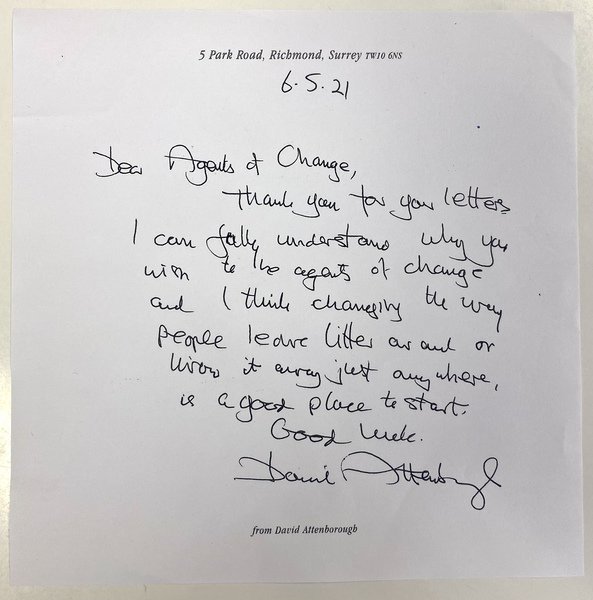 5 Park Road, Richmond, Surrey TW10 6NS
6.5.21
Dear Agents of Change,
Thank you for your letters
I can fully understand why you
wish to be agents of change
and I think changing the way
people leave litter around or
throw it away just anywhere,
is a good place to start.
Good luck.
David Attenborough
from David Attenborough